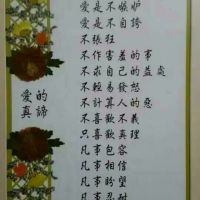 愛是不嫉妒
愛是不自誇
不張狂
不作害羞的事
不求自己的益處
不輕易發怒
不計算人的惡
不喜歡不義
只喜歡真理
凡事包容
凡事相信
凡事盼望
凡事忍耐
愛的
真諦